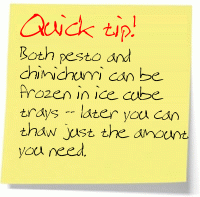 Quick tip!
Both pesto and
chimichurri can be
frozen in ice cube
trays -- later you can
thaw just the amount
you need.